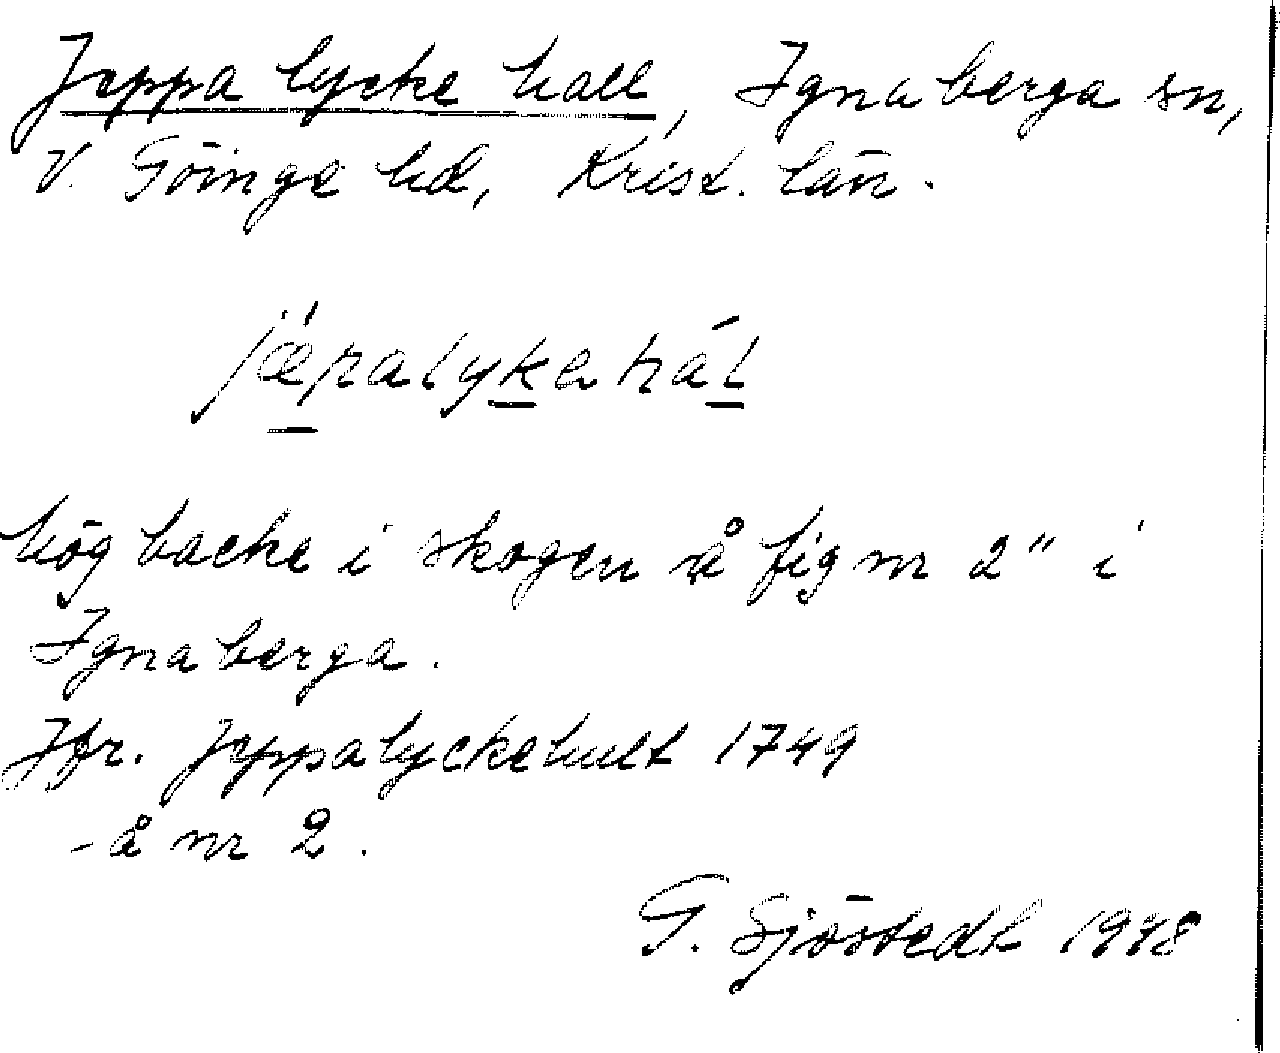 Jeppa lycke hall, Ignaberga sn,
V. Göinge hd, Krist. län.
jæpalykahál
hög backe i skogen å fig nr 2" i
Ignaberga.
Jfr. Jeppalyckehult 1749
- å nr 2.
G. Sjöstedt 1948